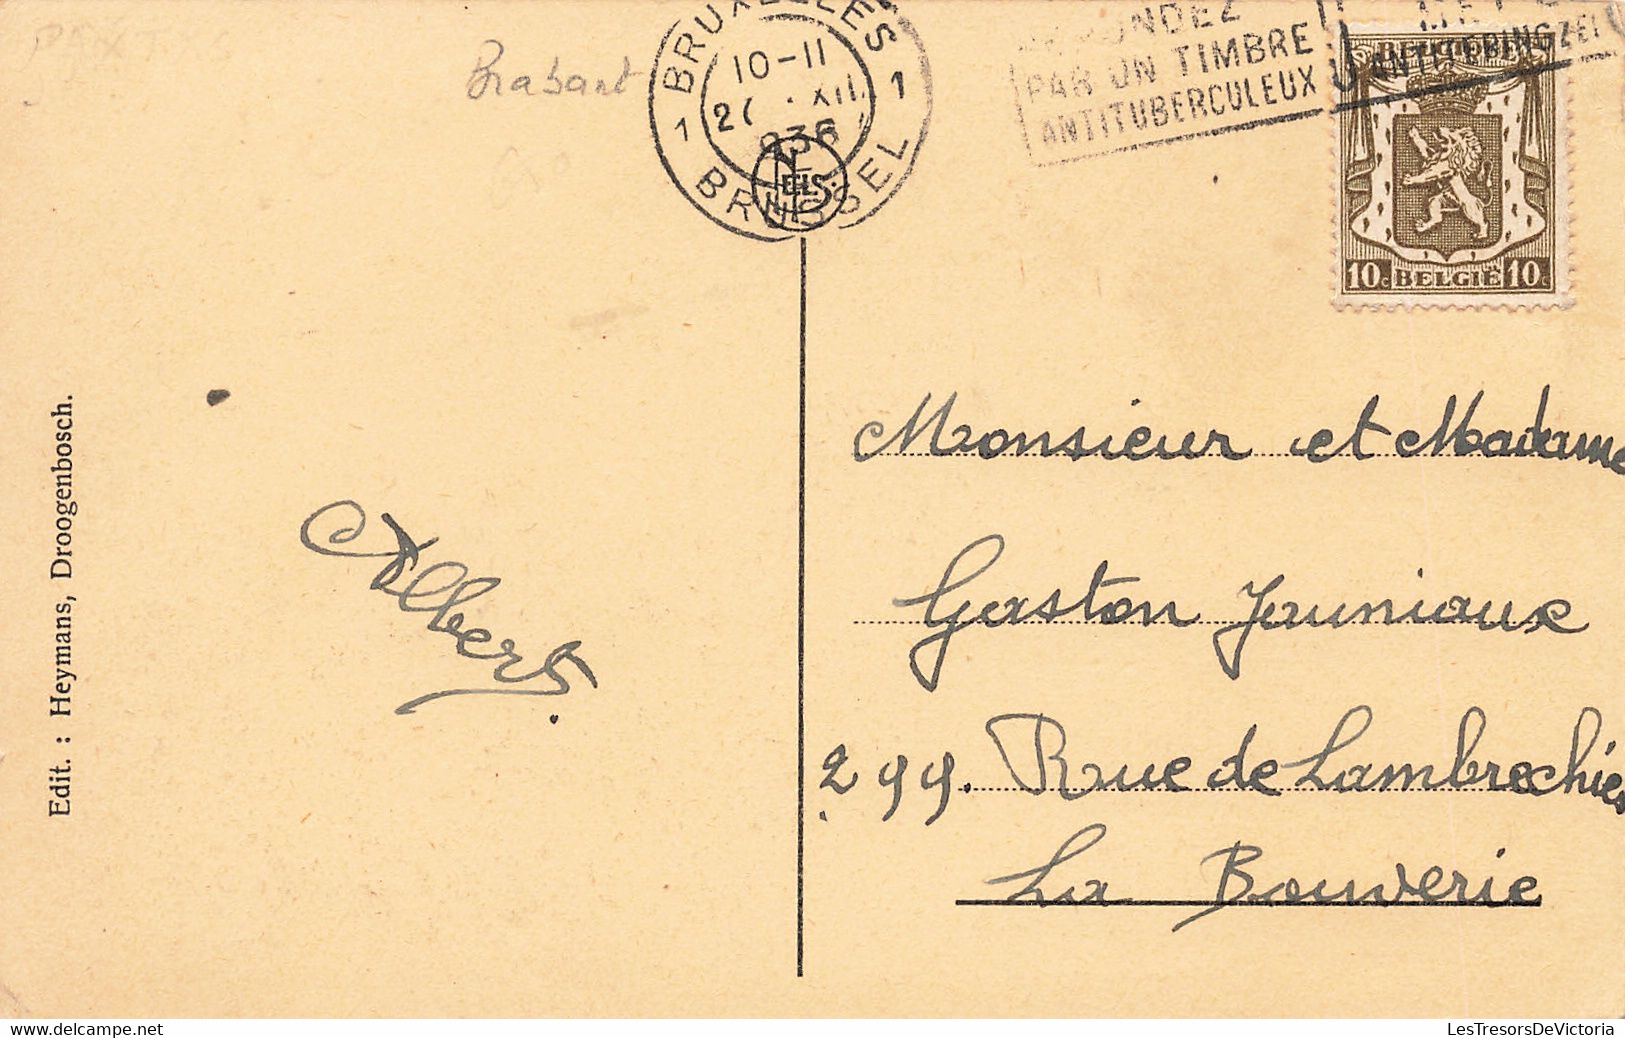 Brabant
BRUXELLES
10-11
27 XII
936
1 1
BRUSSEL
NELS
PAR UN TIMBRE
ANTITUBERCULEUX
ANTITERINGZEGEL
BELGIQUE
10c BELGIË 10c
Edit. : Heymans, Droogenbosch.
Albert.
Monsieur et Madame
Gaston Jauniaux
299. Rue de Lambrechies
La Bouverie
LesTresorsDeVictoria